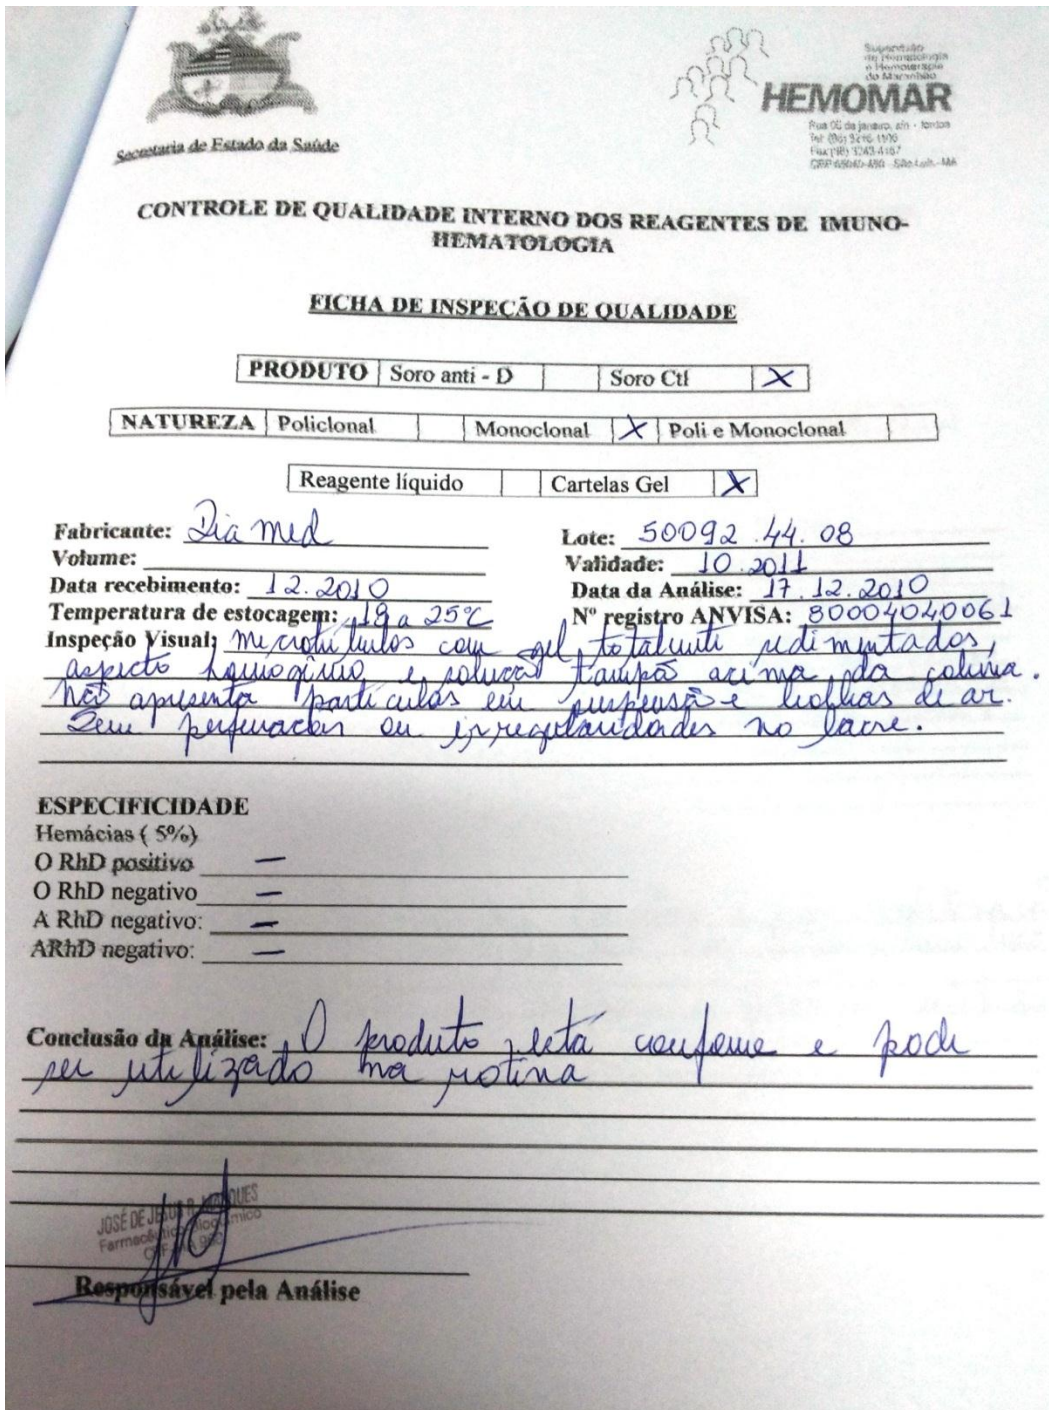 Secretaria de Estado da Saúde
Supervisão
de Hematologia
e Hemoterapia
do Maranhão
HEMOMAR
Rua 5 de janeiro, s/n - Jordoa
CONTROLE DE QUALIDADE INTERNO DOS REAGENTES DE IMUNO-
HEMATOLOGIA
FICHA DE INSPEÇÃO DE QUALIDADE
PRODUTO Soro anti - D Soro Ctl X
NATUREZA Policlonal Monoclonal X Poli e Monoclonal
Reagente líquido Cartelas Gel X
Fabricante: Dia med Lote: 50092.44.08
Volume: Validade: 10.2011
Data recebimento: 12.2010 Data da Análise: 17.12.2010
Temperatura de estocagem: 18 a 25°C Nº registro ANVISA: 80004040061
Inspeção Visual: microtúbulos com gel totalmente sedimentados,
aspecto homogêneo e solução tampão acima da coluna.
não apresenta partículas em suspensão e bolhas de ar.
Sem perfurações ou irregularidades no lacre.
ESPECIFICIDADE
Hemácias ( 5%)
O RhD positivo —
O RhD negativo —
A RhD negativo: —
ARhD negativo: —
Conclusão da Análise: O produto está conforme e pode
ser utilizado na rotina
JOSÉ DE JESUS R. MARQUES
Farmacêutico Bioquímico
Responsável pela Análise